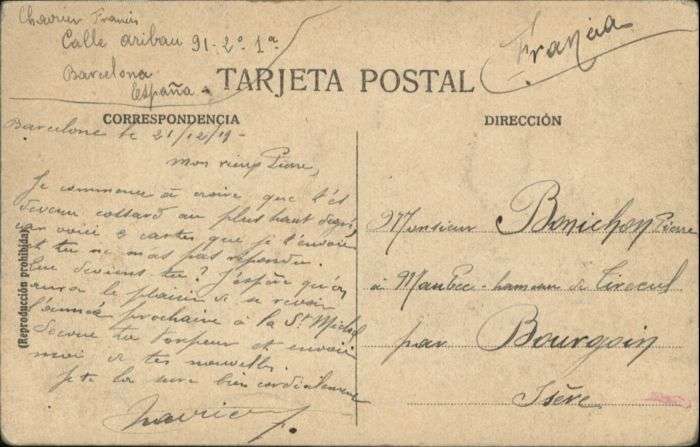 Francis
Calle Aribau 91-2º 1ª
Barcelona
España
Francia
TARJETA POSTAL
CORRESPONDENCIA
DIRECCIÓN
(Reproducción prohibida)
Barcelone le 21/12/19-
Mon vieux Pierre,
Je commence à croire que t'es
devenu au plus haut degré,
car voici cartes que je t'envoie
et tu ne m'as pas répondu.
Que deviens tu? J'espère qu'on
aura le plaisir de se revoir
l'année prochaine à la St Michel
Secoue ta torpeur et envoie
moi de tes nouvelles.
Je te la serre bien cordialement
Monsieur Bonichon Pierre
à Maubec-hameau de Tirecul
par Bourgoin
Isère